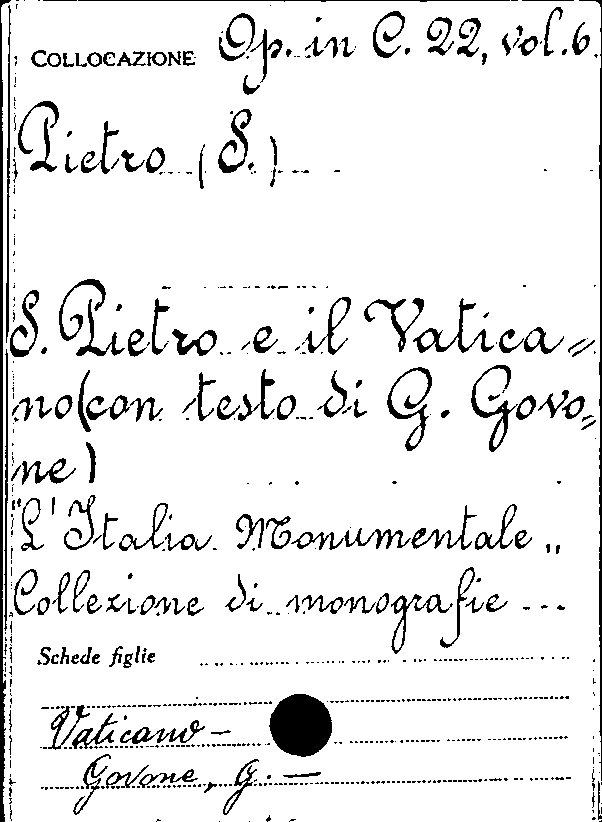 COLLOCAZIONE Op. in C. 22, vol. 6
Pietro (S.)
S. Pietro e il Vatica=
no (con testo di G. Govo=
ne)
"L'Italia Monumentale„
Collezione di monografie ...
Schede figlie
Vaticano –
Govone, G. —